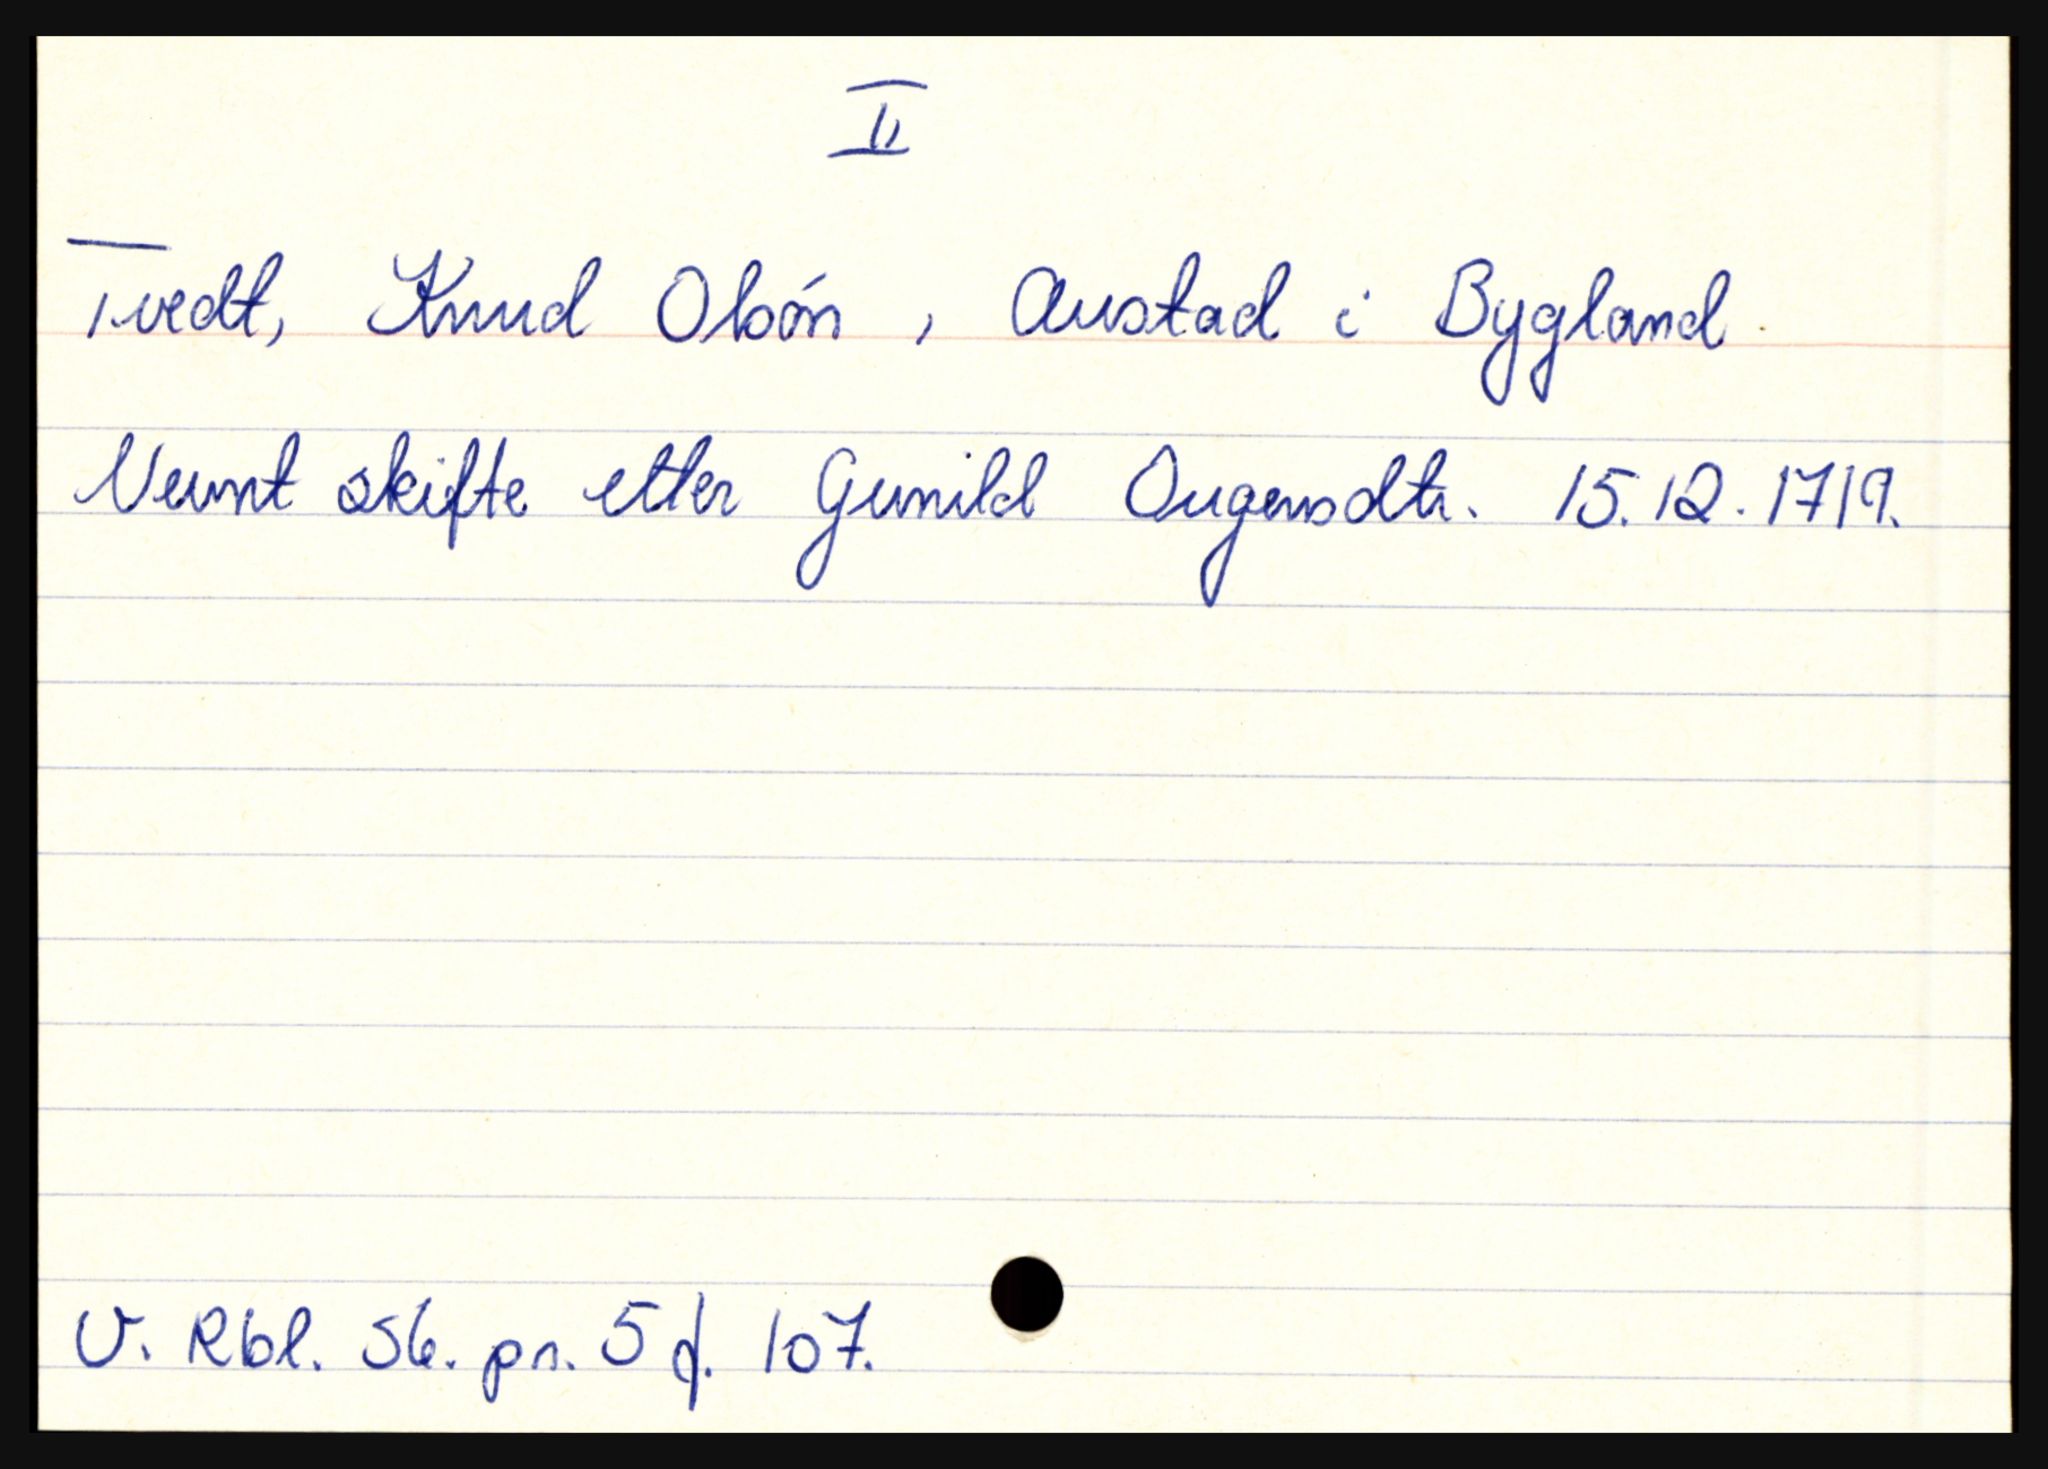 II
Tvedt, Knud Olsón, Austad i Bygland.
Nevnt skifte etter Gunild Augensdtr. 15.12.1719.
V. Rbl. 56. pr. 5 f. 107.